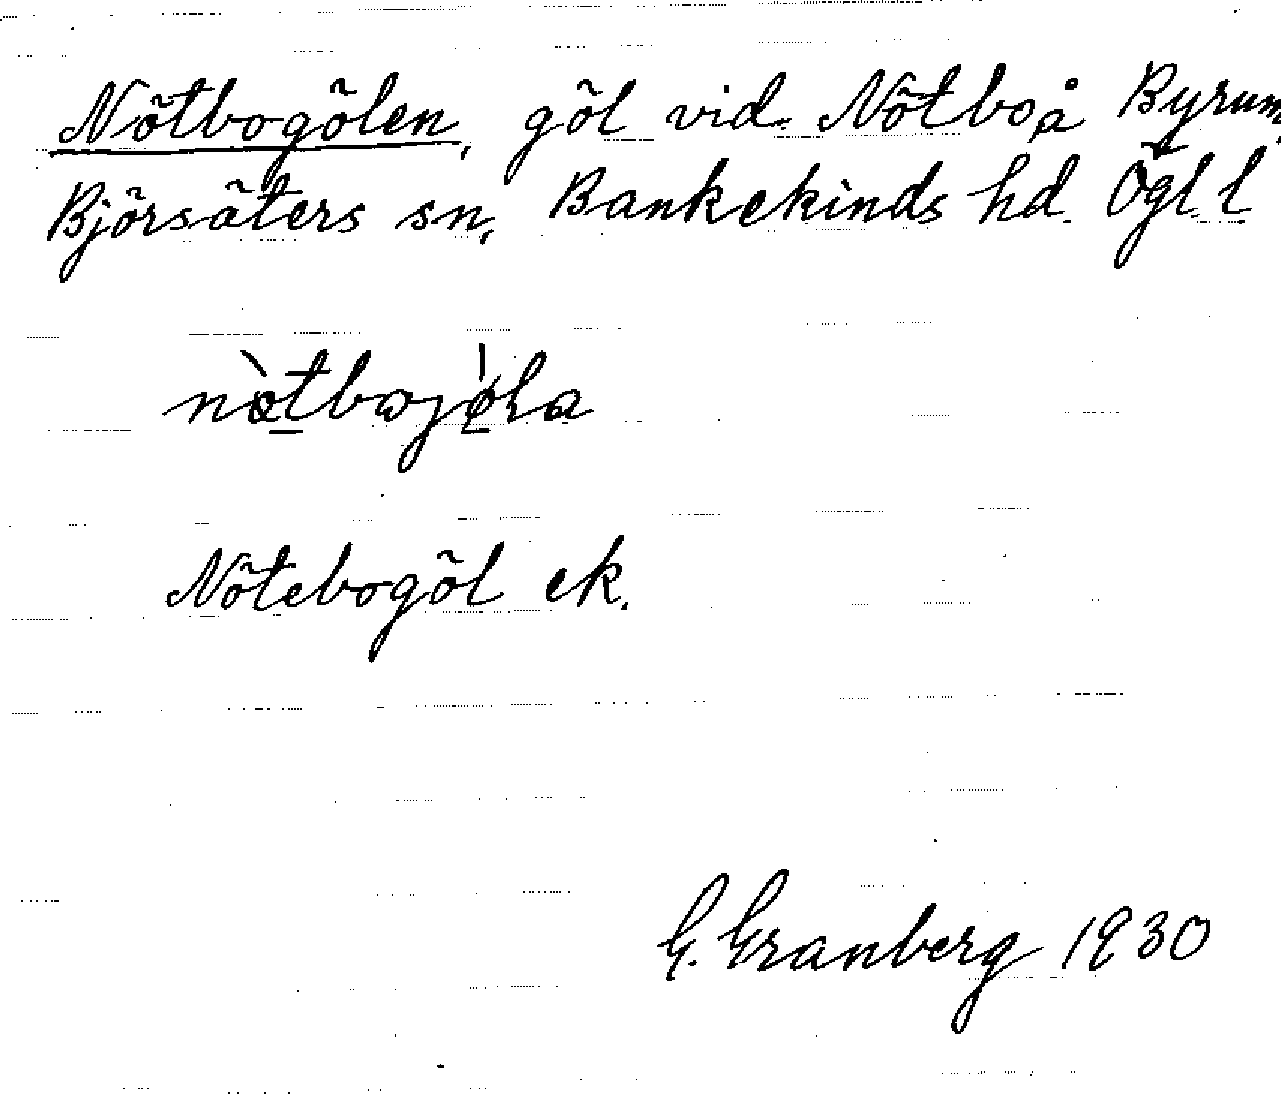 Nötbogölen, göl vid Nötbo å Byrum,
Björsäters sn, Bankekinds hd Ögl l
Nötebogöl ek.
G. Granberg 1930